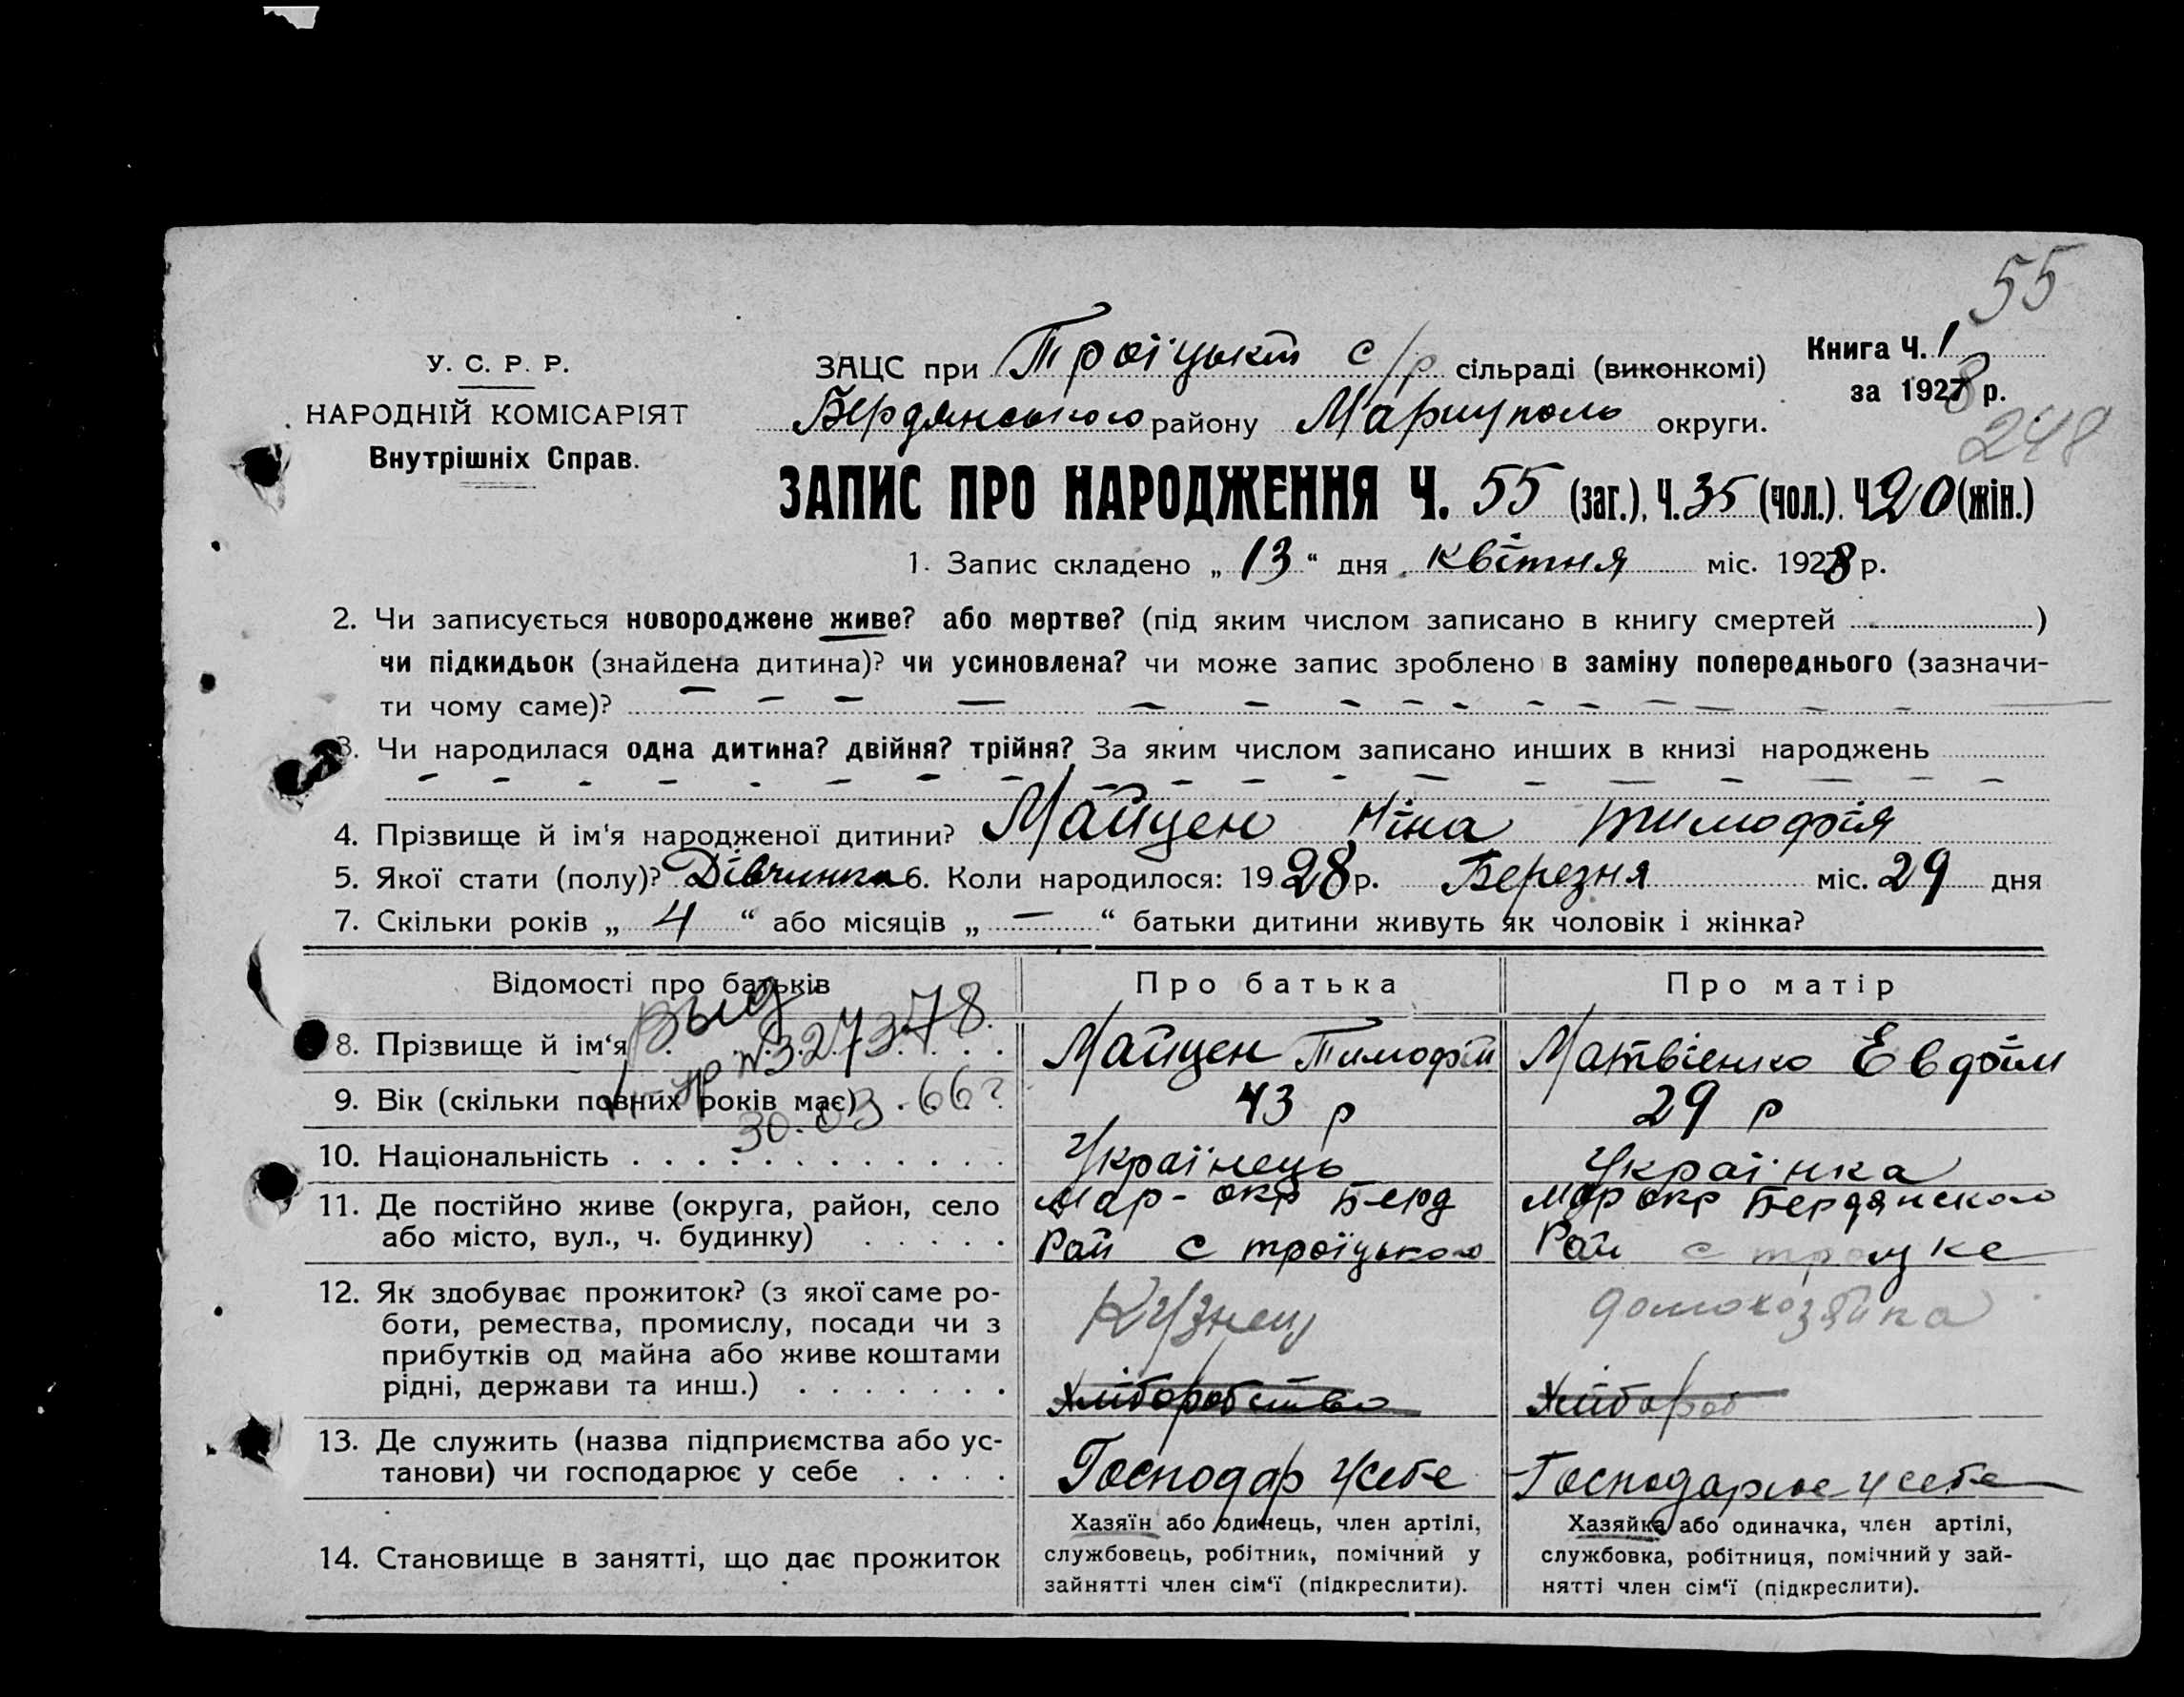 55
У. С. Р. Р.
НАРОДНІЙ КОМІСАРІЯТ
Внутрішніх Справ.
ЗАЦС при Троїцькій с/р сільраді (виконкомі)
Бердянського району Мариуполь округи.
Книга Ч. 1
за 1928 р.
248
ЗАПИС ПРО НАРОДЖЕННЯ Ч. 55 (заг.), Ч. 35 (чол.). Ч 20 (жін.)
1. Запис складено „ 13 “ дня квітня міс. 1928 р.
2. Чи записується новороджене живе? або мертве? (під яким числом записано в книгу смертей )
чи підкидьок (знайдена дитина)? чи усиновлена? чи може запис зроблено в заміну попереднього (зазначи-
ти чому саме)? — — — — — — — — — — — — — —
3. Чи народилася одна дитина? двійня? трійня? За яким числом записано инших в книзі народжень
— — — — — — — — — — — — — — — —
4. Прізвище й ім'я народженої дитини? Майцен Ніна Тимофія
5. Якої стати (полу)? Дівчинка 6. Коли народилося: 19 28 р. Березня міс. 29 дня
7. Скільки років „ 4 “ або місяців „ — “ батьки дитини живуть як чоловік і жінка?
Відомості про батьків Про батька Про матір
выд
8. Прізвище й ім‘я Майцен Тимофій Матвіенко Евдоким
№ 327378
9. Вік (скільки повних років має) 43 р 29 р
30.03.66
10. Національність Українець Українка
11. Де постійно живе (округа, район, село Мар-окр Берд Мар окр Бердянского
або місто, вул., ч. будинку) Рай с троїцького Рай с троцке
12. Як здобуває прожиток? (з якої саме ро-
боти, ремества, промислу, посади чи з Кузнец домохозяйка
прибутків од майна або живе коштами
рідні, держави та инш.) Хліборобство Хлібороб
13. Де служить (назва підприємства або ус-
танови) чи господарює у себе Господар усебе Господарює у себе
14. Становище в занятті, що дає прожиток
Хазяїн або одинець, член артілі,
службовець, робітник, помічний у
зайнятті член сім‘ї (підкреслити).
Хазяйка або одиначка, член артілі,
службовка, робітниця, помічний у зай-
нятті член сім‘ї (підкреслити).